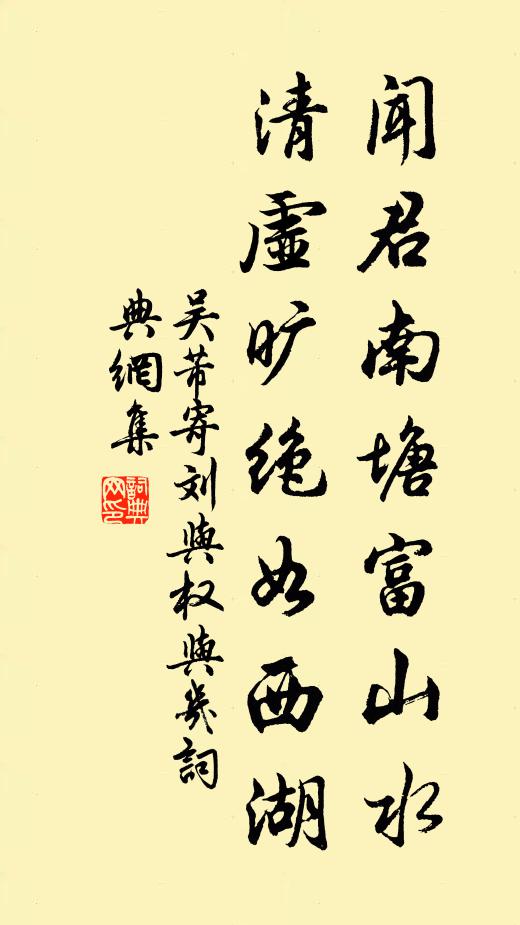 闻君南塘富山水
清虚旷绝如西湖
吴芾寄刘與权與几詞
典網集
詞典
网印